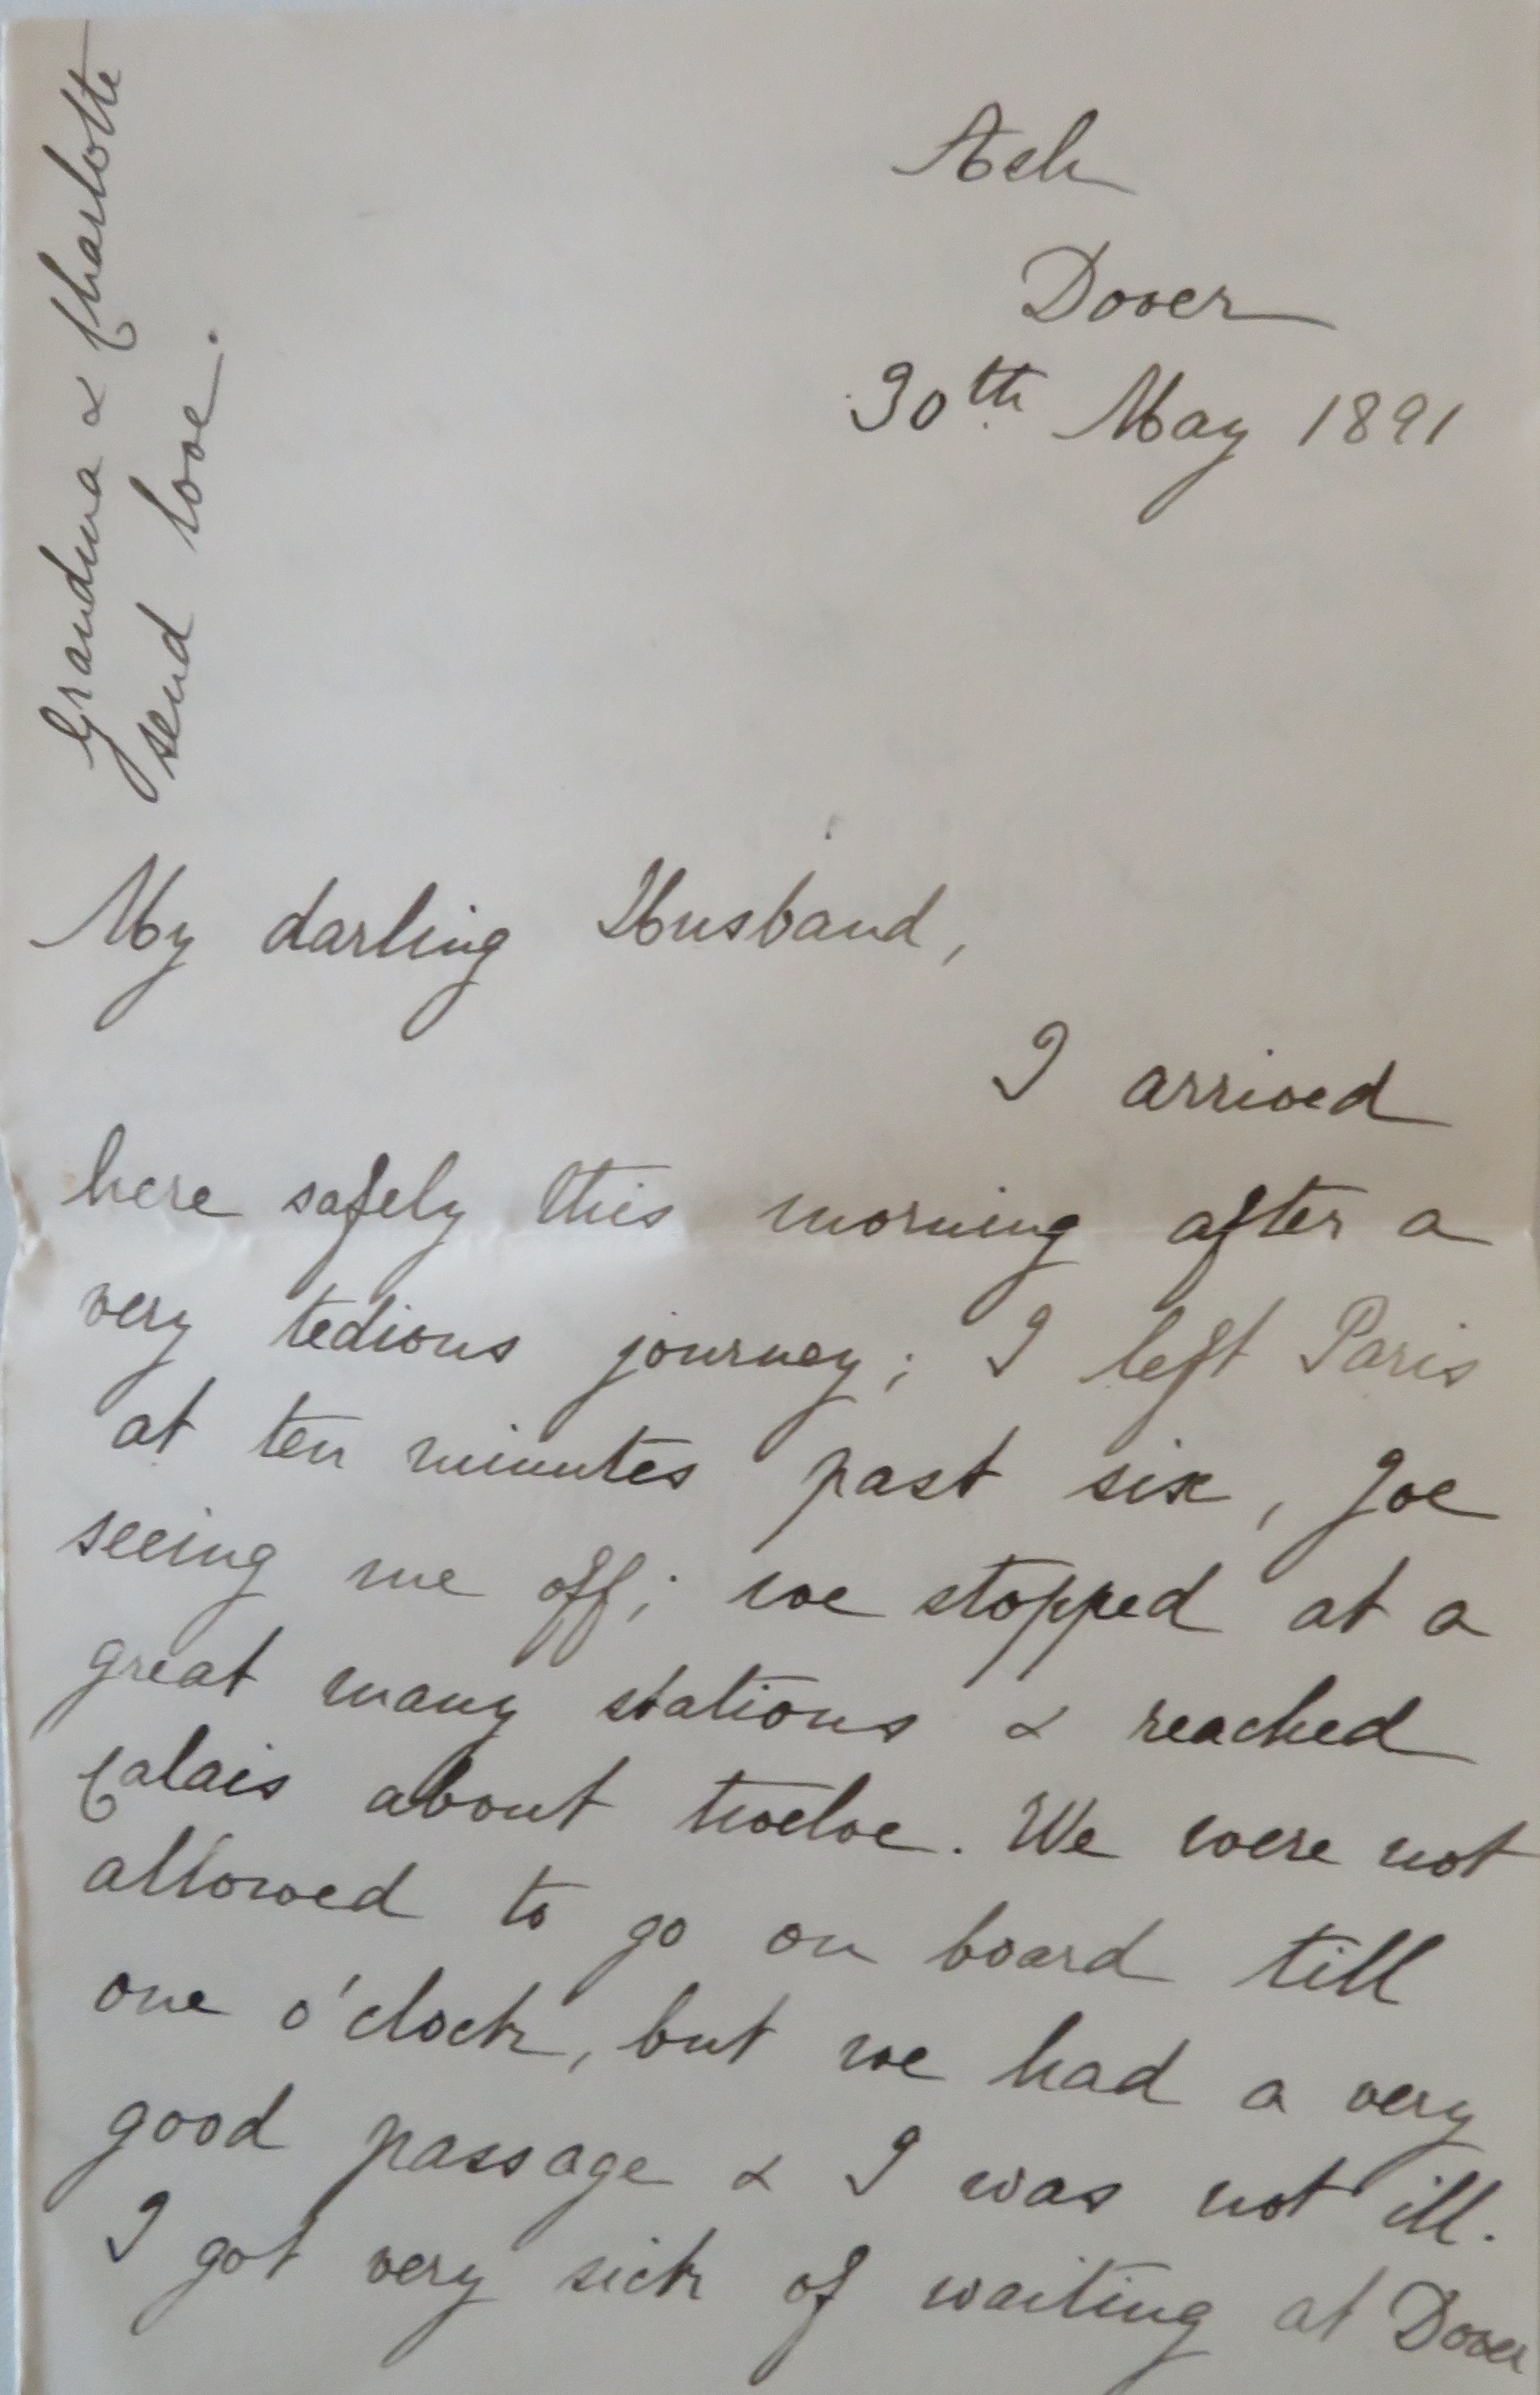 Ash
Dover
30th May 1891
Grandma & Charlotte
send love.
My darling Husband,
I arrived
here safely this morning after a
very tedious journey; I left Paris
at ten minutes past six, Joe
seeing me off; we stopped at a
great many stations & reached
Calais about twelve. We were not
allowed to go on board till
one o'clock, but we had a very
good passage & I was not ill.
I got very sick of waiting at Dover